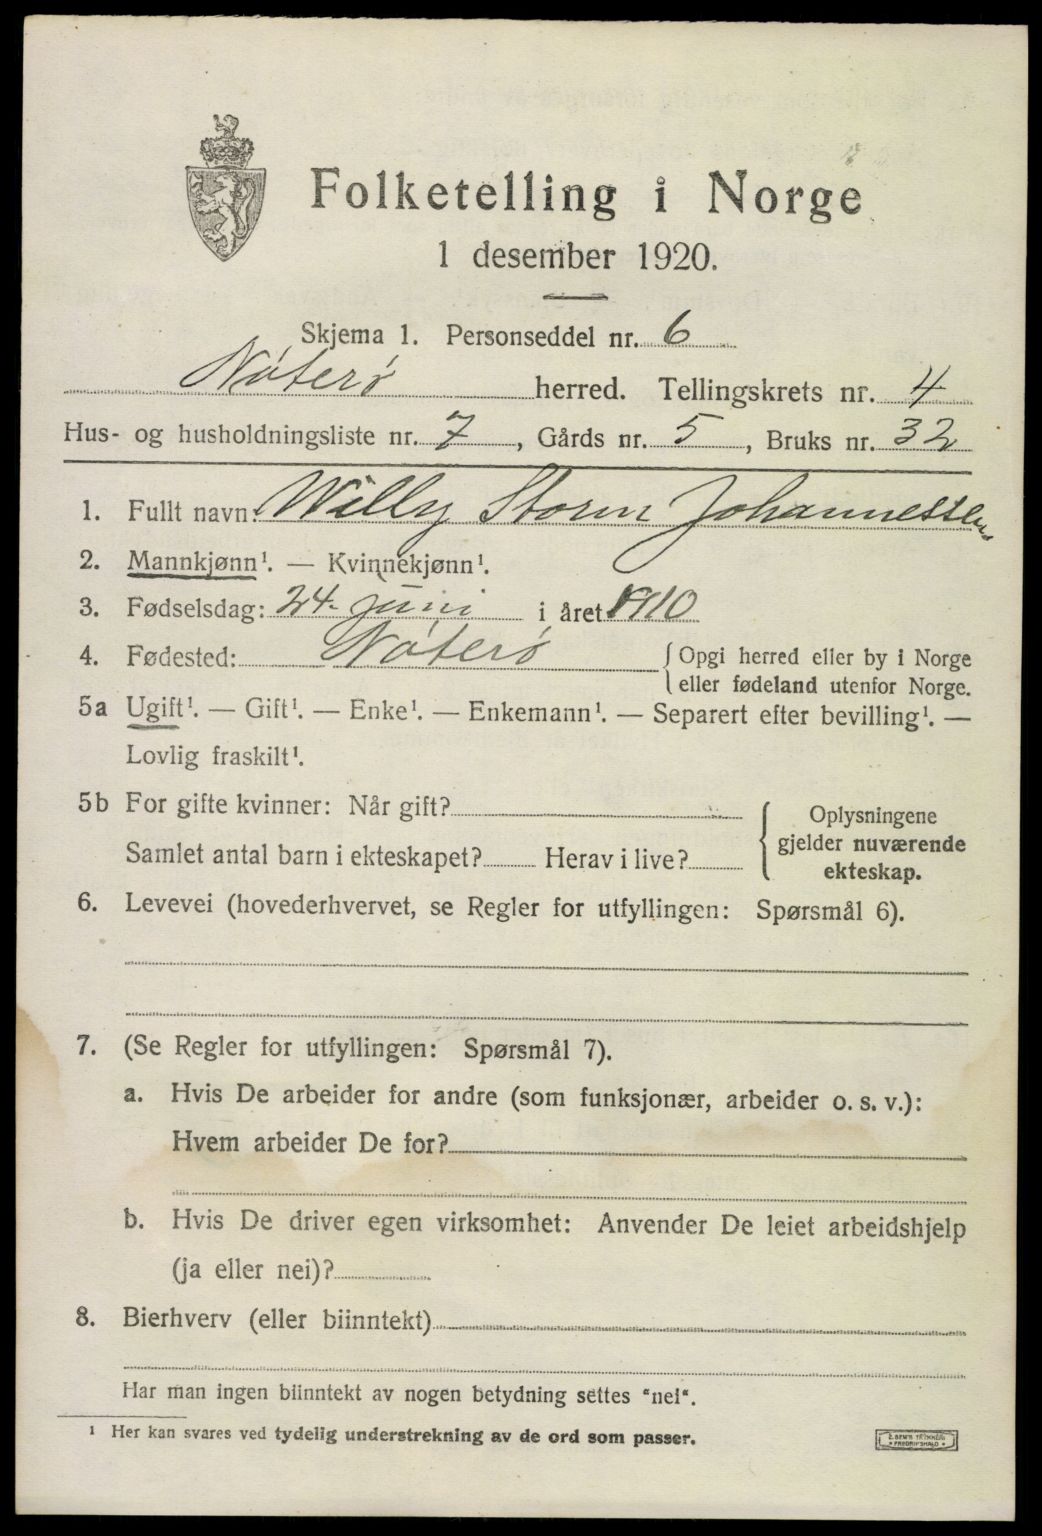 Folketelling i Norge
1 desember 1920.
Skjema 1. Personseddel nr. 6
Nøterø herred. Tellingskrets nr. 4
Hus- og husholdningsliste nr. 7, Gårds nr. 5, Bruks nr. 32
1. Fullt navn: Willy Storm Johannessen
2. Mannkjønn¹. — Kvinnekjønn¹.
3. Fødselsdag: 24. juni i året 1910
4. Fødested: Nøterø { Opgi herred eller by i Norge
eller fødeland utenfor Norge.
5a Ugift¹. — Gift¹. — Enke¹. — Enkemann¹. — Separert efter bevilling¹. —
Lovlig fraskilt¹.
5b For gifte kvinner: Når gift?
Samlet antal barn i ekteskapet? Herav i live?
{ Oplysningene
gjelder nuværende
ekteskap.
6. Levevei (hovederhvervet, se Regler for utfyllingen: Spørsmål 6).
7. (Se Regler for utfyllingen: Spørsmål 7).
a. Hvis De arbeider for andre (som funksjonær, arbeider o. s. v.):
Hvem arbeider De for?
b. Hvis De driver egen virksomhet: Anvender De leiet arbeidshjelp
(ja eller nei)?
8. Bierhverv (eller biinntekt)
Har man ingen biinntekt av nogen betydning settes "nei".
¹ Her kan svares ved tydelig understrekning av de ord som passer.
FREDRIKSHALD